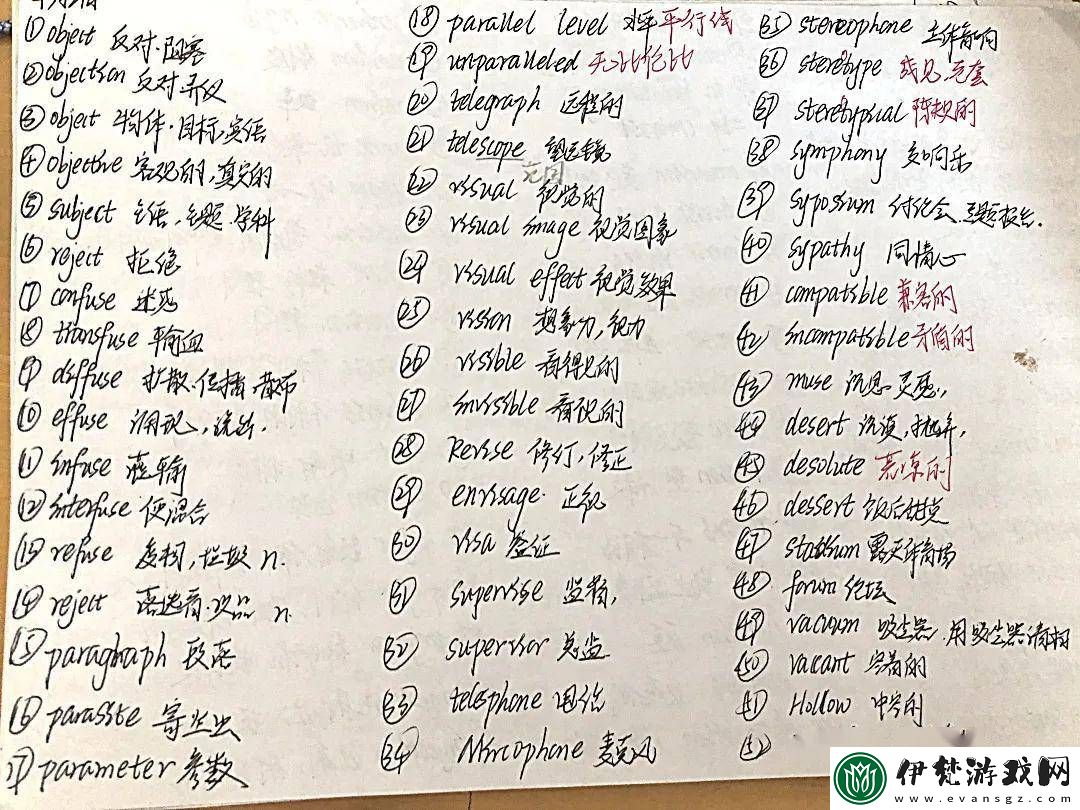 ① object 反对·阻塞
② objection 反对 异议
③ object 物体·目标,宾语
④ objective 客观的,真实的
⑤ subject 主语,主题·学科
⑥ reject 拒绝
⑦ confuse 迷惑
⑧ transfuse 输血
⑨ diffuse 扩散·传播·散布
⑩ effuse 涌现,流出.
⑪ infuse 灌输
⑫ interfuse 使混合
⑬ refuse 垃圾 n.
⑭ reject 次品 n.
⑮ paraghaph 段落
⑯ parasite 寄生虫
⑰ parameter 参数
⑱ parallel level 水平 平行线
⑲ unparalleled 无比伦比
⑳ telegraph 远程的
㉑ telescope 望远镜
㉒ visual 视觉的
㉓ visual image 视觉图象
㉔ visual effect 视觉效果
㉕ vision 想象力,视力
㉖ visible 看得见的
㉗ invisible
㉘ Revise 修订,修正
㉙ envisage. 正视
㉚ visa 签证
㉛ supervise 监督,
㉜ supervisor 总监
㉝ telephone 电话
㉞ Microphone 麦克风
㉟ stereophone 立体音响
㊱ steretype
㊲ steretypical
㊳ symphony 交响乐
㊴ syposium 讨论会.主题报告.
㊵ sypathy 同情心
㊶ compatible 兼容的
㊷ incompatible 矛盾的
㊸ muse 沉思 灵感,
㊹ desert 沙漠,抛弃,
㊺ desolute 荒凉的
㊻ dessert 饭后甜点
㊼ 露天体育场
㊽ forum 论坛
㊾ vacuum 吸尘器.用吸尘器清扫
㊿ vacant 空着的
51 Hollow 中空的
52
伊梵游戏网
www.evansgz.com